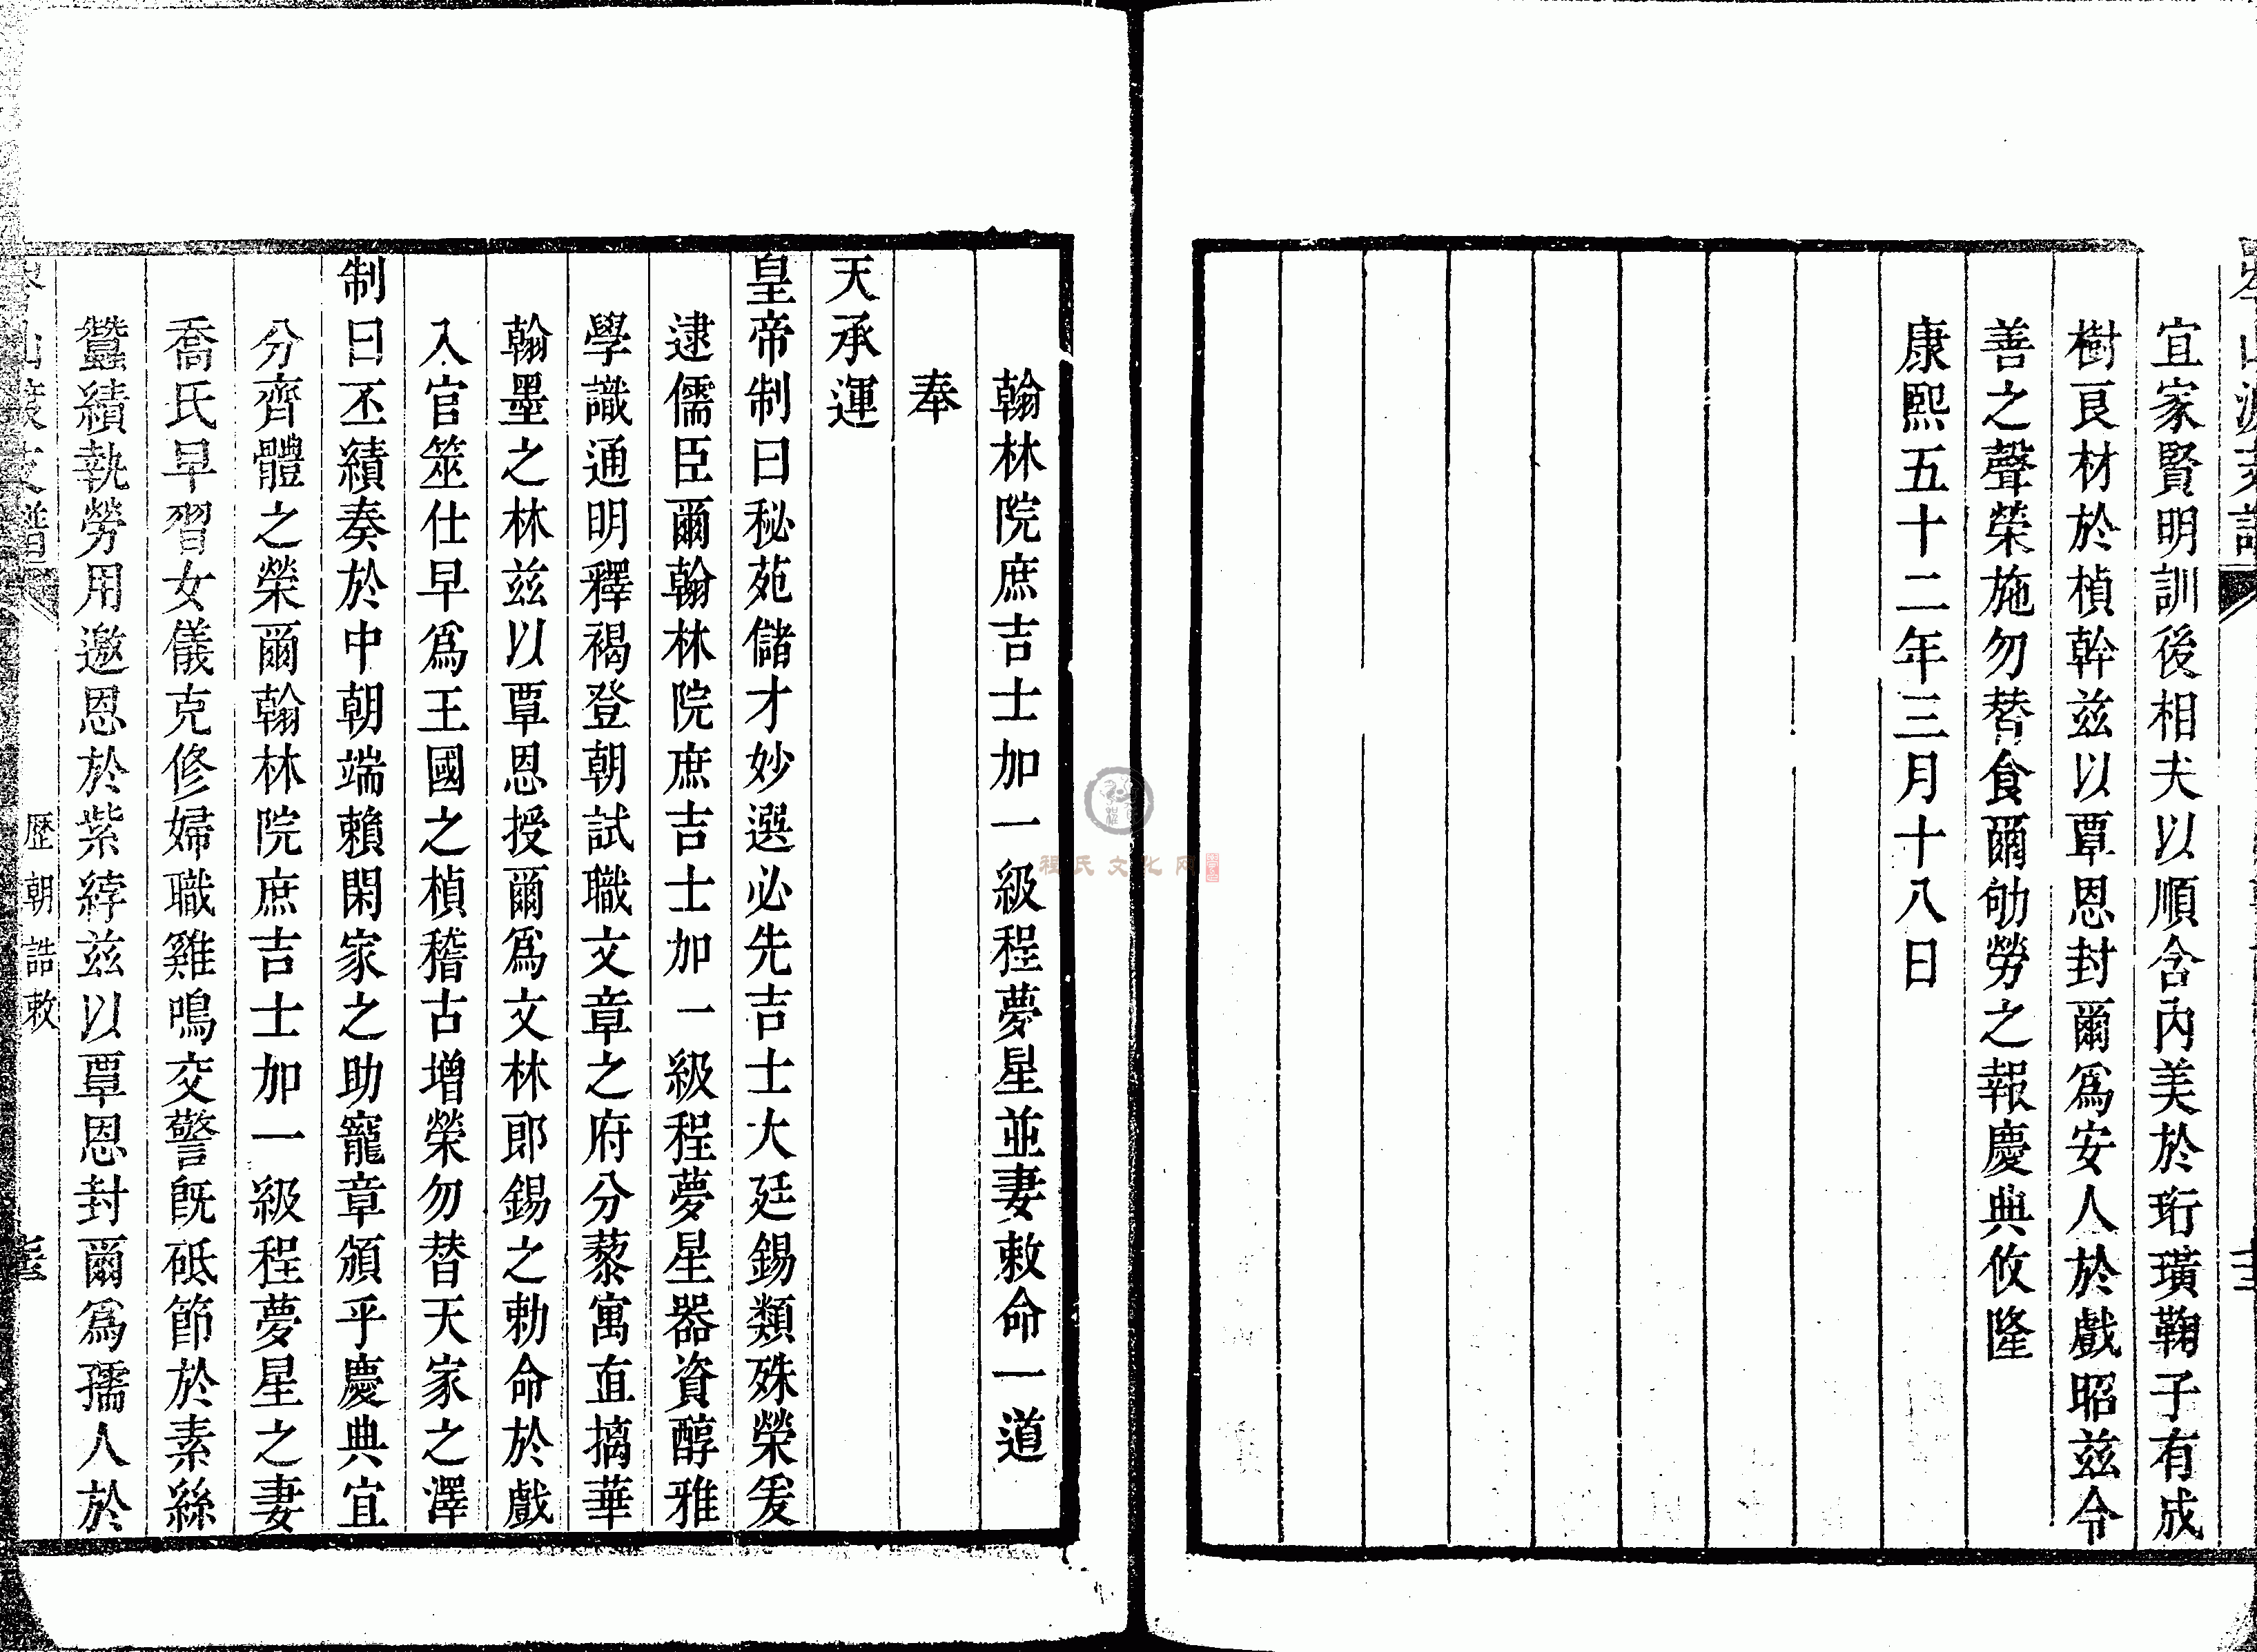 宜家賢明訓後相夫以順含內美於珩璜鞠子有成
樹良材於楨幹兹以覃恩封爾爲安人於戲昭兹令
善之聲榮施勿替食爾劬勞之報慶典攸隆
康熙五十二年三月十八日
翰林院庶吉士加一級程夢星並妻敕命一道
奉
天承運
皇帝制曰秘苑儲才妙選必先吉士大廷錫類殊榮爰
逮儒臣爾翰林院庶吉士加一級程夢星器資醇雅
學識通明釋褐登朝試職文章之府分藜寓直摛華
翰墨之林兹以覃恩授爾爲文林郎錫之勅命於戲
入官筮仕早爲王國之楨稽古增榮勿替天家之澤
制曰丕績奏於中朝端賴閑家之助寵章頒乎慶典宜
分齊體之榮爾翰林院庶吉士加一級程夢星之妻
喬氏早習女儀克修婦職雞鳴交警旣砥節於素絲
蠶績執勞用邀恩於紫綍兹以覃恩封爾爲孺人於
歷朝誥敕
程氏文化网